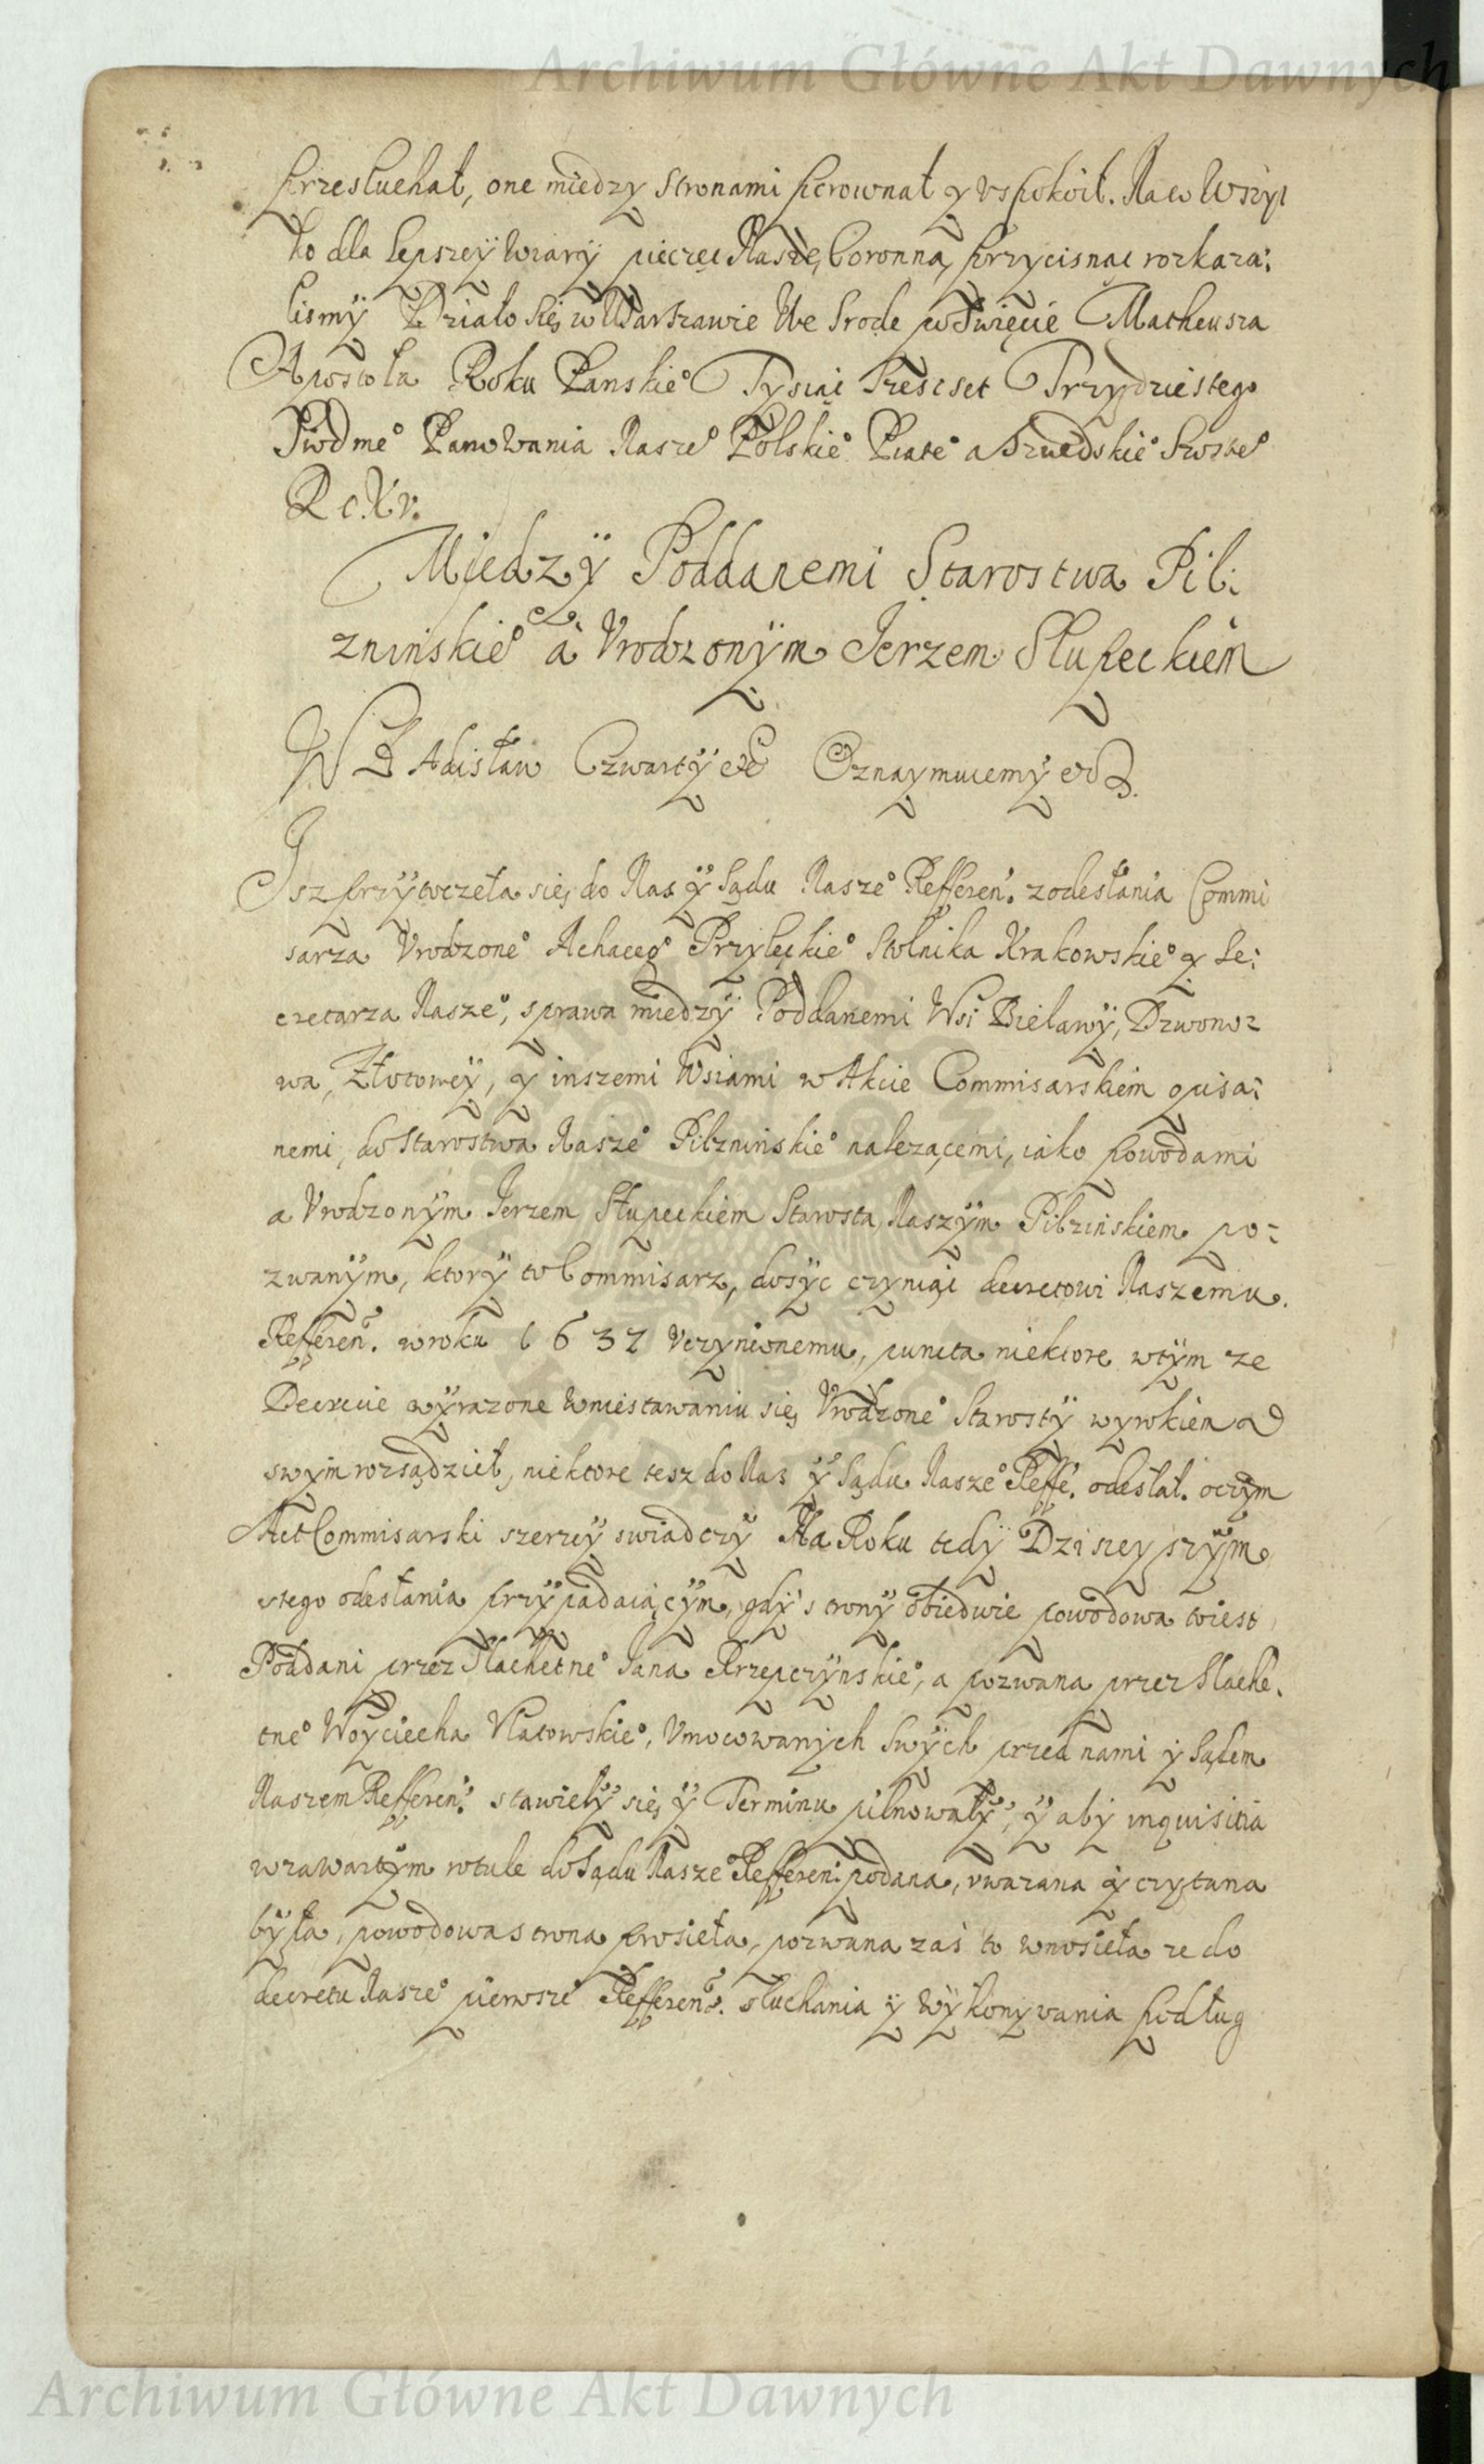 Archiwum Główne Akt Dawnych
przesłuchał, one miedzy Stronami porownał y vspokoił. Na co Wszyt
ko dla lepszeÿ Wiarÿ pieczęc Naszę Coronną przycisnąc rozkaza:
lismÿ Działo się w Warszawie We Srodę po Swięcie Matheusza
Apostoła Roku Panskieº Tysiąc Szescset Trzydziestego
Siodmeº Panowania Naszeº Polskieº Piąteº a Szwedskieº Szosteº
R c. Xv.
Miedzÿ Poddanemi Starostwa Pil:
znınskieº à Vrodzonÿm Jerzem Słupeckiem
Władisław Czwartÿ etc Oznaymuiemÿ etc
Isz przÿtoczeła się do Nas ÿ Sądu Naszeº Refferenº. z odesłania Commi
sarza Vrodzoneº Achacegº Przyłęckieº Stolnika Krakowskieº y Se:
cretarza Naszeº, sprawa miedzÿ Poddanemi Wsi Bielawÿ, Dzwono:
wa, Złotoweÿ, y inszemi Wsiami w Akcie Commisarskiem opisa:
nemi, do Starostwa Naszeº Pilznınskieº nalezącemi, iako powodami
a Vrodzonÿm Jerzem Słupeckiem Starostą Naszÿm Pilzinskiem po:
zwanÿm, ktorÿ to Commisarz, dosÿc czyniąc decretowi Naszemu
Refferenº. w roku 1637 Vczynionemu, puncta niektore w tÿm ze
Decrecie wÿrazone w niestawaniu się Vrodzoneº Starostÿ wyrokiem
swÿm rozsądzieł, niektore tesz do Nas ÿ Sądu Naszeº Reffeº. odesłał. oczÿm
Act Commisarski szerzeÿ swiadczÿ Na Roku tedÿ Dzisieyszÿm
z tego odesłania przÿpadaiącÿm, gdÿ stronÿ obiedwie powodowa to iest
Poddani przez Slachetneº Jana Krzepczÿnskieº, a pozwana przez Slache.
tneº Woyciecha Vlatowskieº, Vmocowanÿch Swÿch przed nami ÿ Sądem
Naszem Refferenº. stawiełÿ się ÿ Terminu pilnowałÿ, ÿ abÿ inquisitia
w zawartÿm rotule do Sądu Naszeº Refferen: podana, vwazana ÿ czytana
bÿła, powodowa strona prosieła, pozwana zaś to wnosieła ze do
decretu Naszeº pierwszeº Refferenº. słuchania ÿ Wÿkonÿwania podług
Archiwum Główne Akt Dawnych